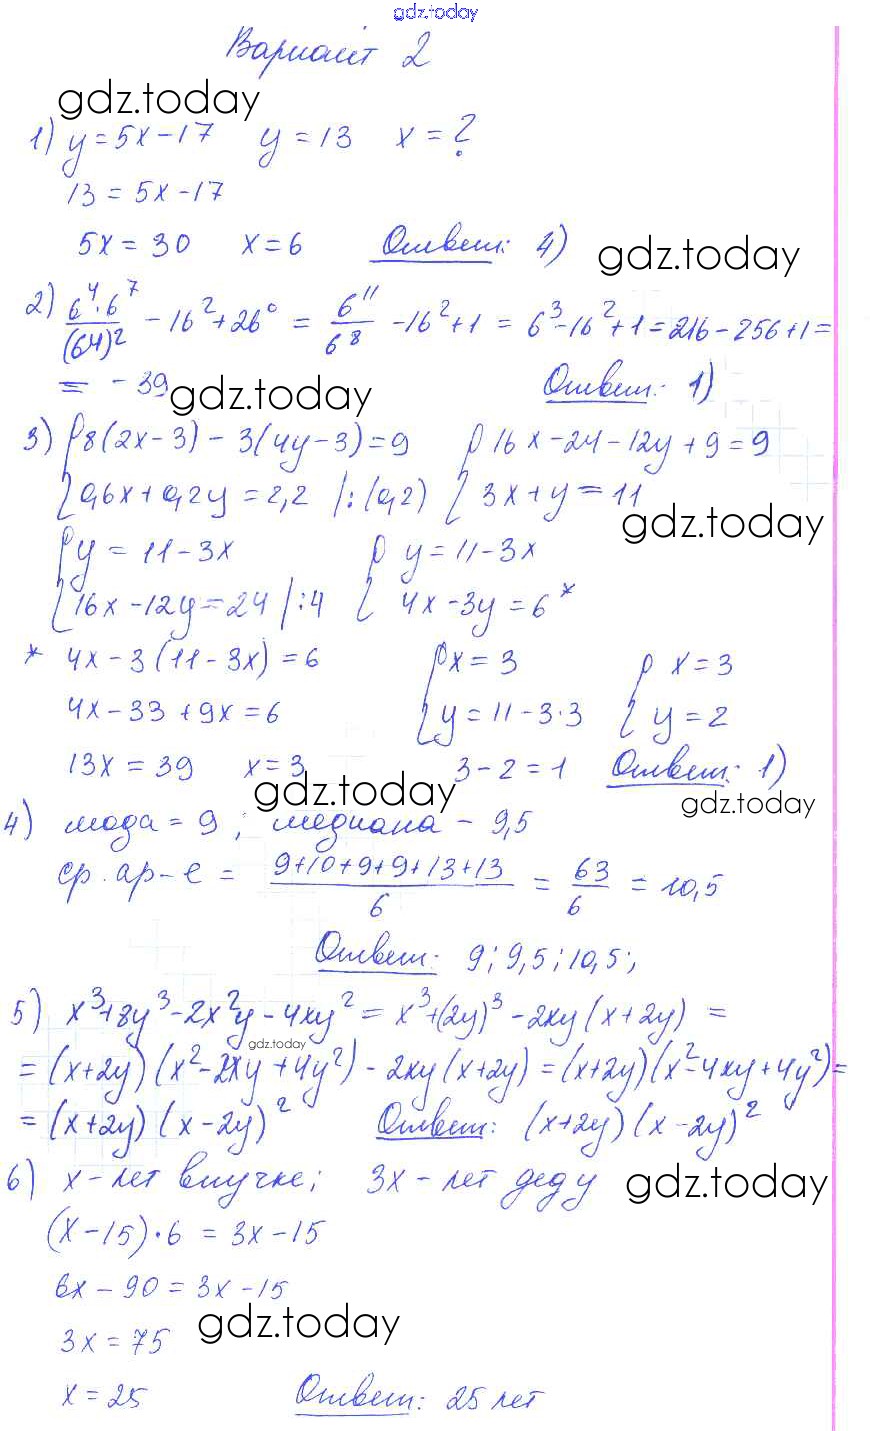 gdz.today
Вариант 2
gdz.today
1) y = 5x - 17   y = 13   x = ?
13 = 5x - 17
5x = 30   x = 6   Ответ: 4)
gdz.today
2) 6⁴·6⁷/(6⁴)² - 16² + 26⁰ = 6¹¹/6⁸ - 16² + 1 = 6³ - 16² + 1 = 216 - 256 + 1 =
= - 39   Ответ: 1)
gdz.today
3) { 8(2x - 3) - 3(4y - 3) = 9   { 16x - 24 - 12y + 9 = 9
{ 0,6x + 0,2y = 2,2 |:(0,2)   { 3x + y = 11
gdz.today
{ y = 11 - 3x   { y = 11 - 3x
{ 16x - 12y = 24 |:4   { 4x - 3y = 6 *
* 4x - 3(11 - 3x) = 6   { x = 3   { x = 3
4x - 33 + 9x = 6   { y = 11 - 3·3   { y = 2
13x = 39   x = 3   3 - 2 = 1   Ответ: 1)
gdz.today
gdz.today
4) мода = 9 ; медиана - 9,5
ср. ар-е = (9+10+9+9+13+13)/6 = 63/6 = 10,5
Ответ: 9; 9,5; 10,5;
5) x³ + 8y³ - 2x²y - 4xy² = x³ + (2y)³ - 2xy(x + 2y) =
gdz.today
= (x+2y)(x² - 2xy + 4y²) - 2xy(x+2y) = (x+2y)(x² - 4xy + 4y²) =
= (x+2y)(x - 2y)²   Ответ: (x+2y)(x - 2y)²
6) x - лет внучке; 3x - лет деду
gdz.today
(x - 15)·6 = 3x - 15
6x - 90 = 3x - 15
gdz.today
3x = 75
x = 25   Ответ: 25 лет